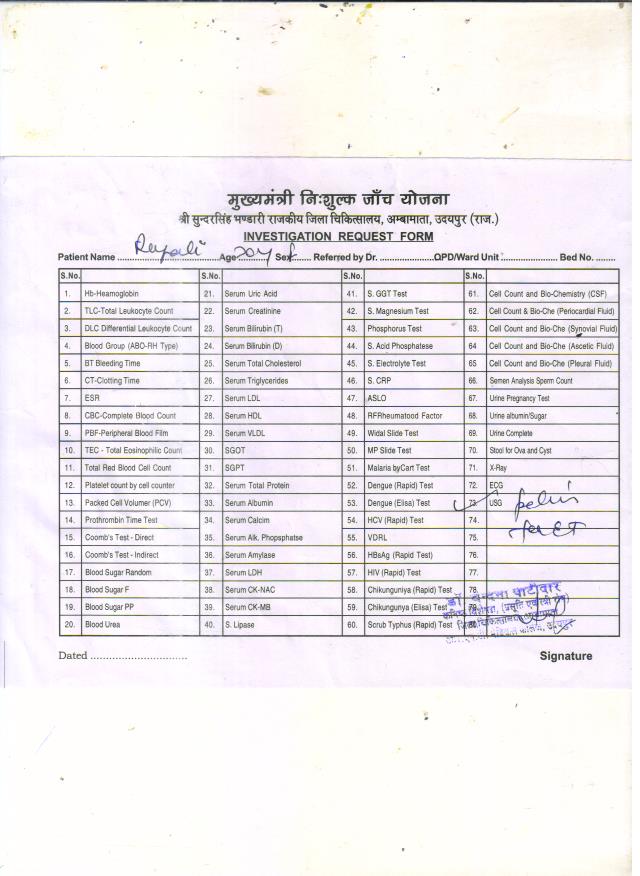 मुख्यमंत्री निःशुल्क जाँच योजना
श्री सुन्दरसिंह भण्डारी राजकीय जिला चिकित्सालय, अम्बामाता, उदयपुर (राज.)
INVESTIGATION REQUEST FORM
Patient Name ............ Age 20y Sex f Referred by Dr. ............ OPD/Ward Unit ............ Bed No. ........
S.No. S.No. S.No. S.No.
1. Hb-Heamoglobin 21. Serum Uric Acid 41. S. GGT Test 61. Cell Count and Bio-Chemistry (CSF)
2. TLC-Total Leukocyte Count 22. Serum Creatinine 42. S. Magnesium Test 62. Cell Count & Bio-Che (Periocardial Fluid)
3. DLC Differential Leukocyte Count 23. Serum Bilirubin (T) 43. Phosphorus Test 63. Cell Count and Bio-Che (Synovial Fluid)
4. Blood Group (ABO-RH Type) 24. Serum Bilirubin (D) 44. S. Acid Phosphatese 64 Cell Count and Bio-Che (Ascetic Fluid)
5. BT Bleeding Time 25. Serum Total Cholesterol 45. S. Electrolyte Test 65 Cell Count and Bio-Che (Pleural Fluid)
6. CT-Clotting Time 26. Serum Triglycerides 46. S. CRP 66. Semen Analysis Sperm Count
7. ESR 27. Serum LDL 47. ASLO 67. Urine Pregnancy Test
8. CBC-Complete Blood Count 28. Serum HDL 48. RFRheumatood Factor 68. Urine albumin/Sugar
9. PBF-Peripheral Blood Film 29. Serum VLDL 49. Widal Slide Test 69. Urine Complete
10. TEC - Total Eosinophilic Count 30. SGOT 50. MP Slide Test 70. Stool for Ova and Cyst
11. Total Red Blood Cell Count 31. SGPT 51. Malaria byCart Test 71. X-Ray
12. Platelet count by cell counter 32. Serum Total Protein 52. Dengue (Rapid) Test 72. ECG
13. Packed Cell Volumer (PCV) 33. Serum Albumin 53. Dengue (Elisa) Test 73. USG pelvis
14. Prothrombin Time Test 34. Serum Calcim 54. HCV (Rapid) Test 74.
for ET
15. Coomb's Test - Direct 35. Serum Alk. Phopsphatse 55. VDRL 75.
16. Coomb's Test - Indirect 36. Serum Amylase 56. HBsAg (Rapid Test) 76.
17. Blood Sugar Random 37. Serum LDH 57. HIV (Rapid) Test 77.
18. Blood Sugar F 38. Serum CK-NAC 58. Chikunguniya (Rapid) Test 78.
19. Blood Sugar PP 39. Serum CK-MB 59. Chikungunya (Elisa) Test 79.
20. Blood Urea 40. S. Lipase 60. Scrub Typhus (Rapid) Test 80.
Dated ............................ Signature